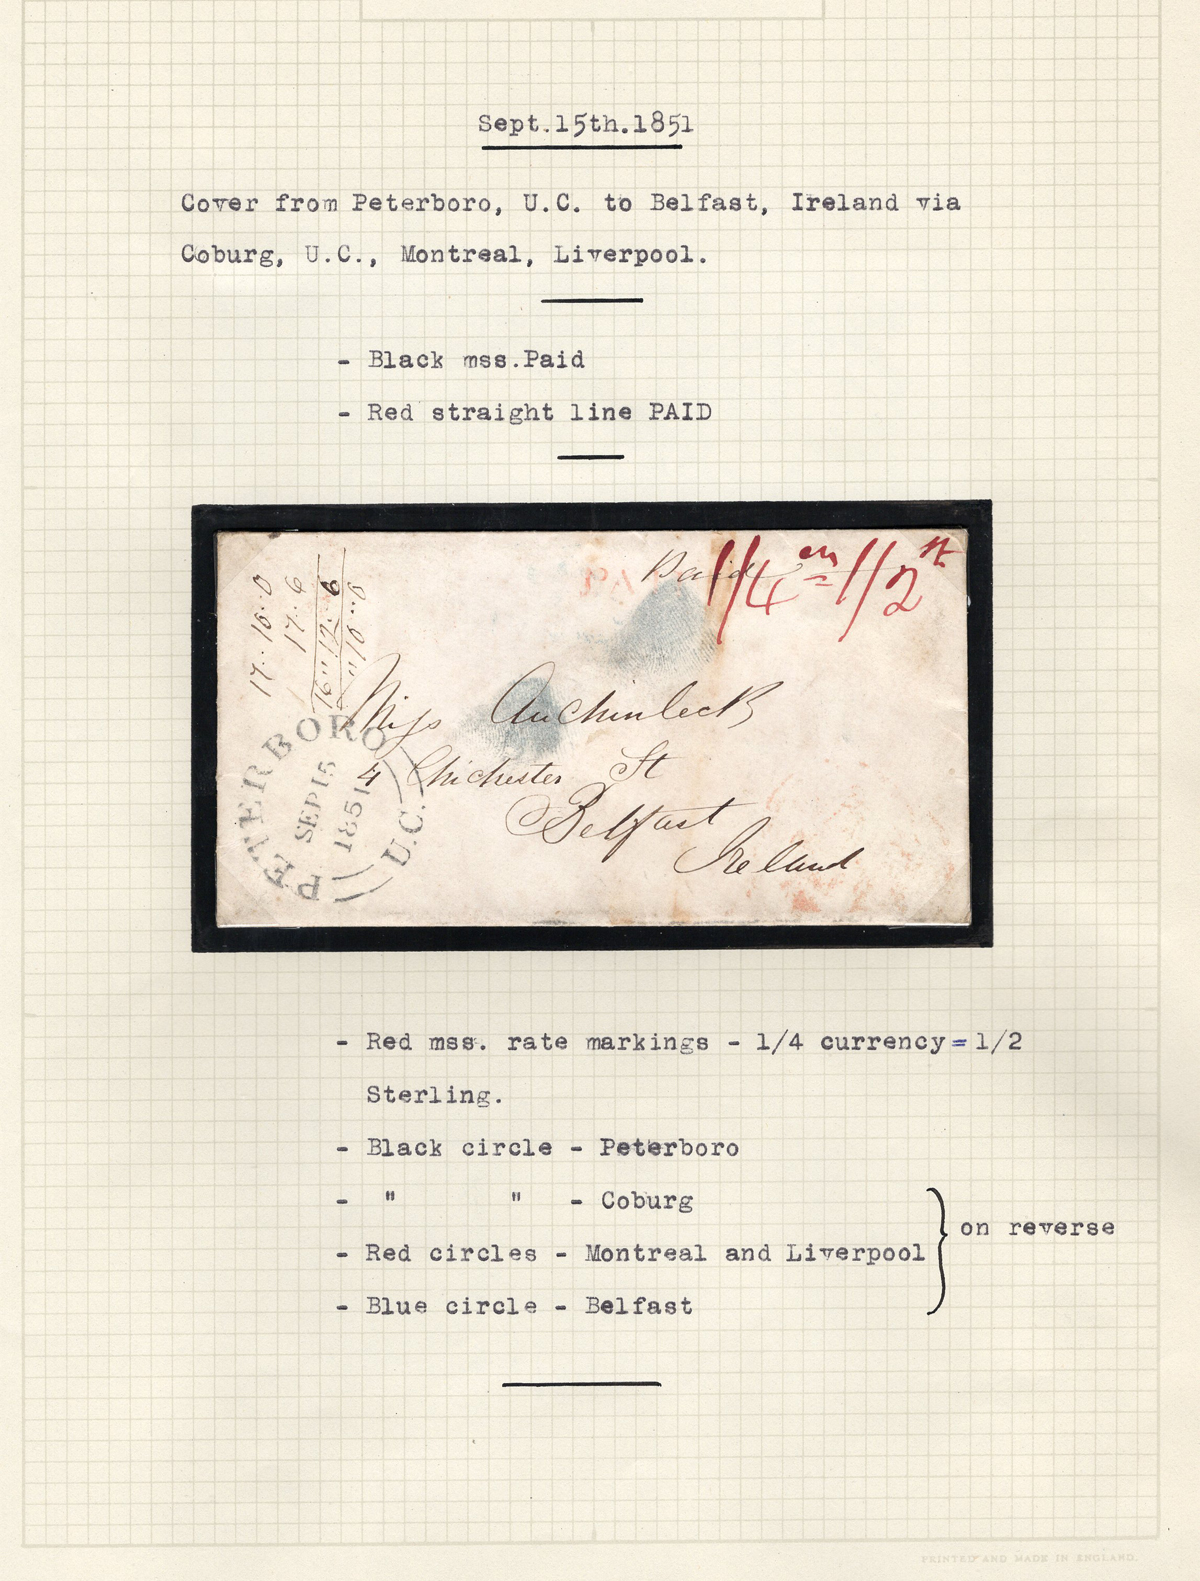 Sept.15th.1851
Cover from Peterboro, U.C. to Belfast, Ireland via
Coburg, U.C., Montreal, Liverpool.
- Black mss.Paid
- Red straight line PAID
Paid 1/4 cy = 1/2 st
17.. 10.. 0
17.. 6
16 " 12.. 6
" 10.. 0
Miss Auchinleck
4 Chichester St
Belfast
Ireland
PETERBORO
SEP 15
1851
U.C.
- Red mss. rate markings - 1/4 currency = 1/2
Sterling.
- Black circle - Peterboro
- " " - Coburg
- Red circles - Montreal and Liverpool
on reverse
- Blue circle - Belfast
PRINTED AND MADE IN ENGLAND.